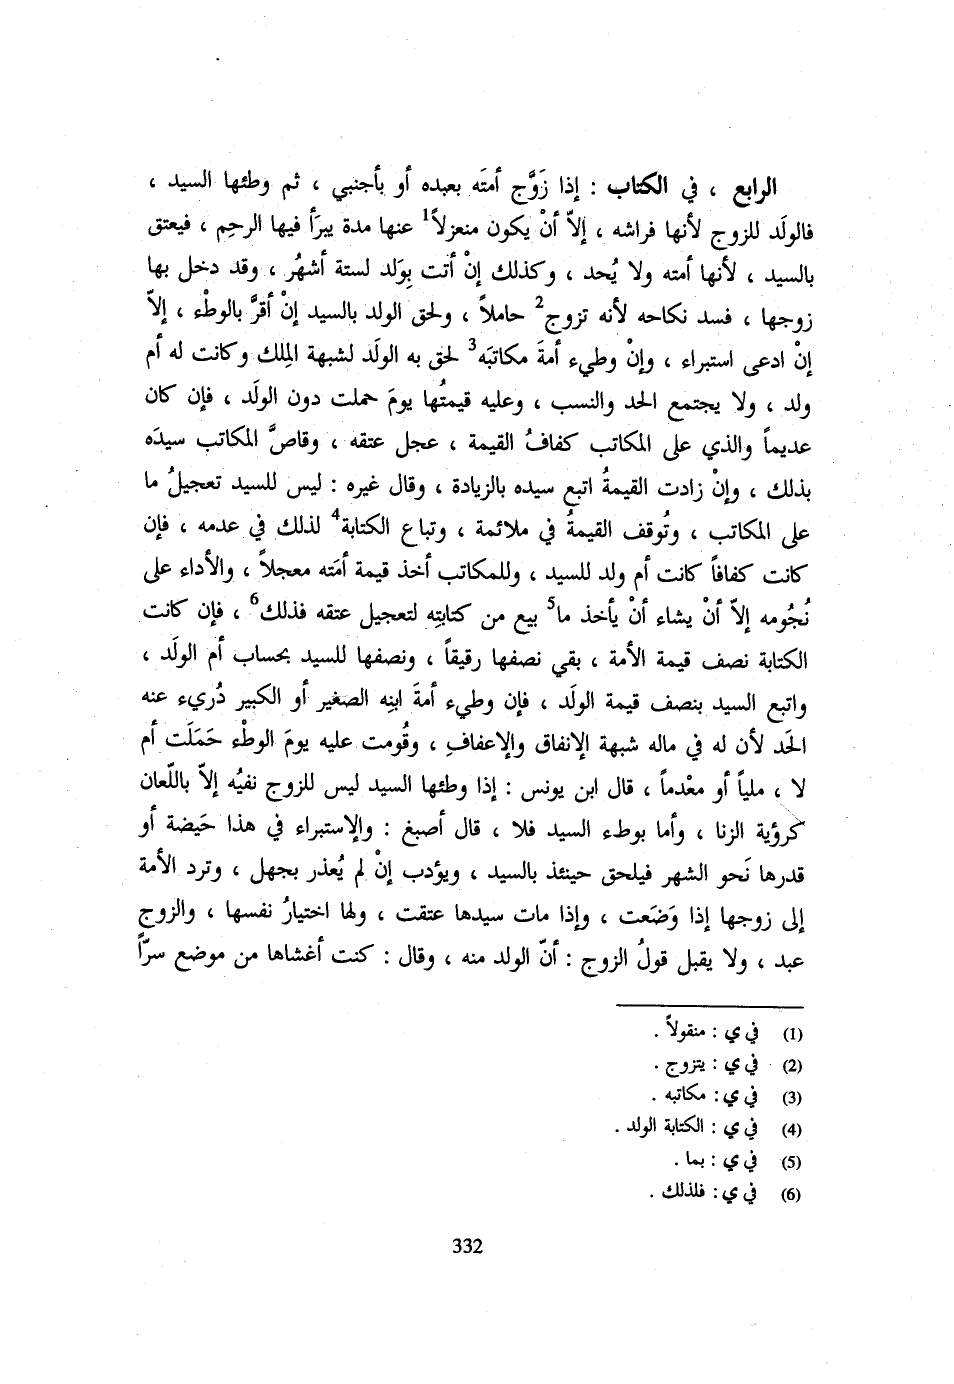 الرابع ، في الكتاب : إذا زَوَّج أمتَه بعبده أو بأجنبي ، ثم وطئها السيد ،
فالولَد للزوج لأنها فراشه ، إلاّ أنْ يكون منعزلاً1 عنها مدة يبرَأ فيها الرحِم ، فيعتق
بالسيد ، لأنها أمته ولا يُحد ، وكذلك إنْ أتت بِوَلد لستة أشهُر ، وقد دخل بها
زوجها ، فسد نكاحه لأنه تزوج2 حاملاً ، ولحق الولد بالسيد إنْ أقرَّ بالوطْء ، إلاّ
إنْ ادعى استبراء ، وإنْ وطيء أمةَ مكاتبَه3 لحق به الولَد لشبهة المِلك وكانت له أم
ولد ، ولا يجتمع الحد والنسب ، وعليه قيمتُها يومَ حملت دون الولَد ، فإن كان
عديماً والذي على المكاتب كفافُ القيمة ، عجل عتقه ، وقاصَّ المكاتب سيدَه
بذلك ، وإنْ زادت القيمةُ اتبع سيده بالزيادة ، وقال غيره : ليس للسيد تعجيلُ ما
على المكاتب ، وتُوقف القيمةُ في ملائمة ، وتباع الكتابة4 لذلك في عدمه ، فإن
كانت كفافاً كانت أم ولد للسيد ، وللمكاتب أخذ قيمة أمَته معجلاً ، والأداء على
نُجُومه إلاّ أنْ يشاء أنْ يأخذ ما5 بيع من كتابتِه لتعجيل عتقه فذلك6 ، فإن كانت
الكتابة نصف قيمة الأمة ، بقي نصفها رقيقاً ، ونصفها للسيد بحساب أم الولَد ،
واتبع السيد بنصف قيمة الولَد ، فإن وطيء أمةَ ابنِه الصغير أو الكبير دُريء عنه
الحَد لأن له في ماله شبهة الإنفاق والإعفافِ ، وقُومت عليه يومَ الوطْء حَمَلَت أم
لا ، ملياً أو معْدماً ، قال ابن يونس : إذا وطئها السيد ليس للزوج نفيُه إلاّ باللّعان
كرؤية الزنا ، وأما بوطء السيد فلا ، قال أصبغ : والإستبراء في هذا حَيضة أو
قدرها نَحو الشهر فيلحق حينئذ بالسيد ، ويؤدب إنْ لم يُعذر بجهل ، وترد الأمة
إلى زوجها إذا وَضَعت ، وإذا مات سيدها عتقت ، ولها اختيارُ نفسها ، والزوج
عبد ، ولا يقبل قولُ الزوج : أنّ الولد منه ، وقال : كنت أغشاها من موضع سرّاً
(1) في ي : منقولاً .
(2) في ي : يتزوج .
(3) في ي : مكاتبه .
(4) في ي : الكتابة الولد .
(5) في ي : بما .
(6) في ي : فلذلك .
332